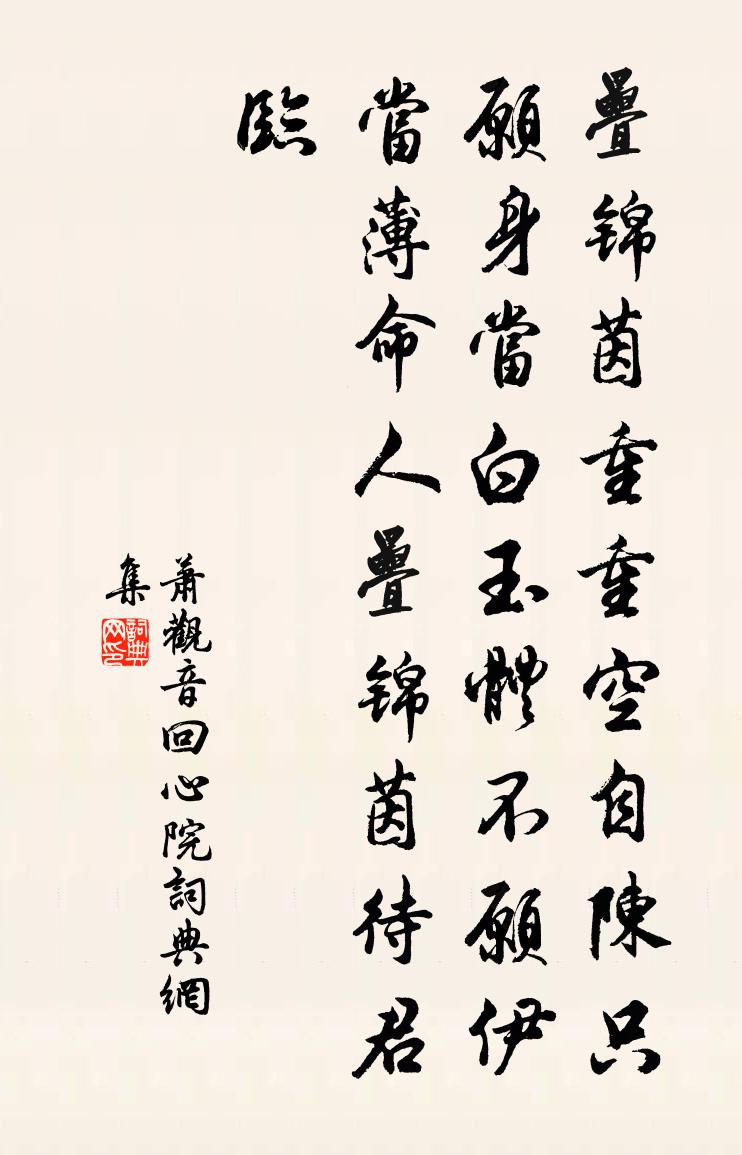 疊錦茵重重空自陳只
願身當白玉體不願伊
當薄命人疊錦茵待君
臨
蕭觀音回心院詞典網
集
詞典
网印